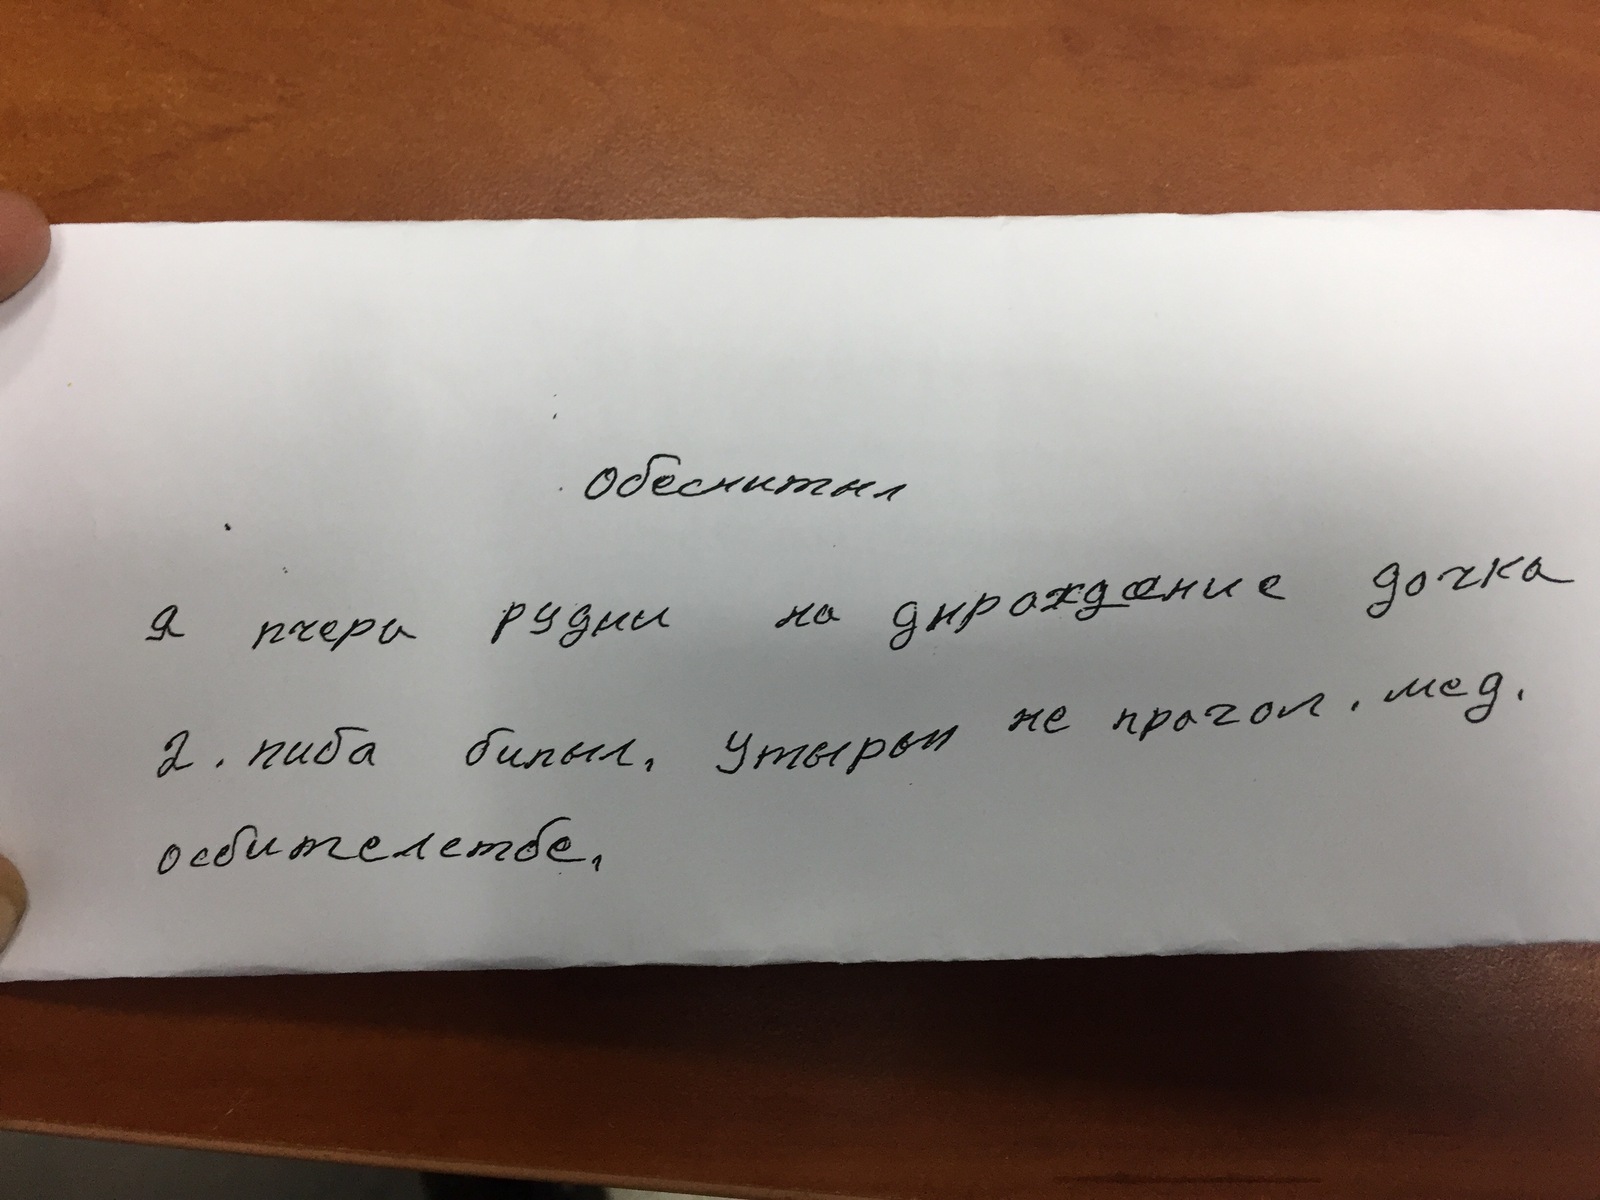 Обеснитыл
Я пчера рудни на дирождение дочка
2. пиба бипыл, утырои не прагол. мед.
осбителетбе,